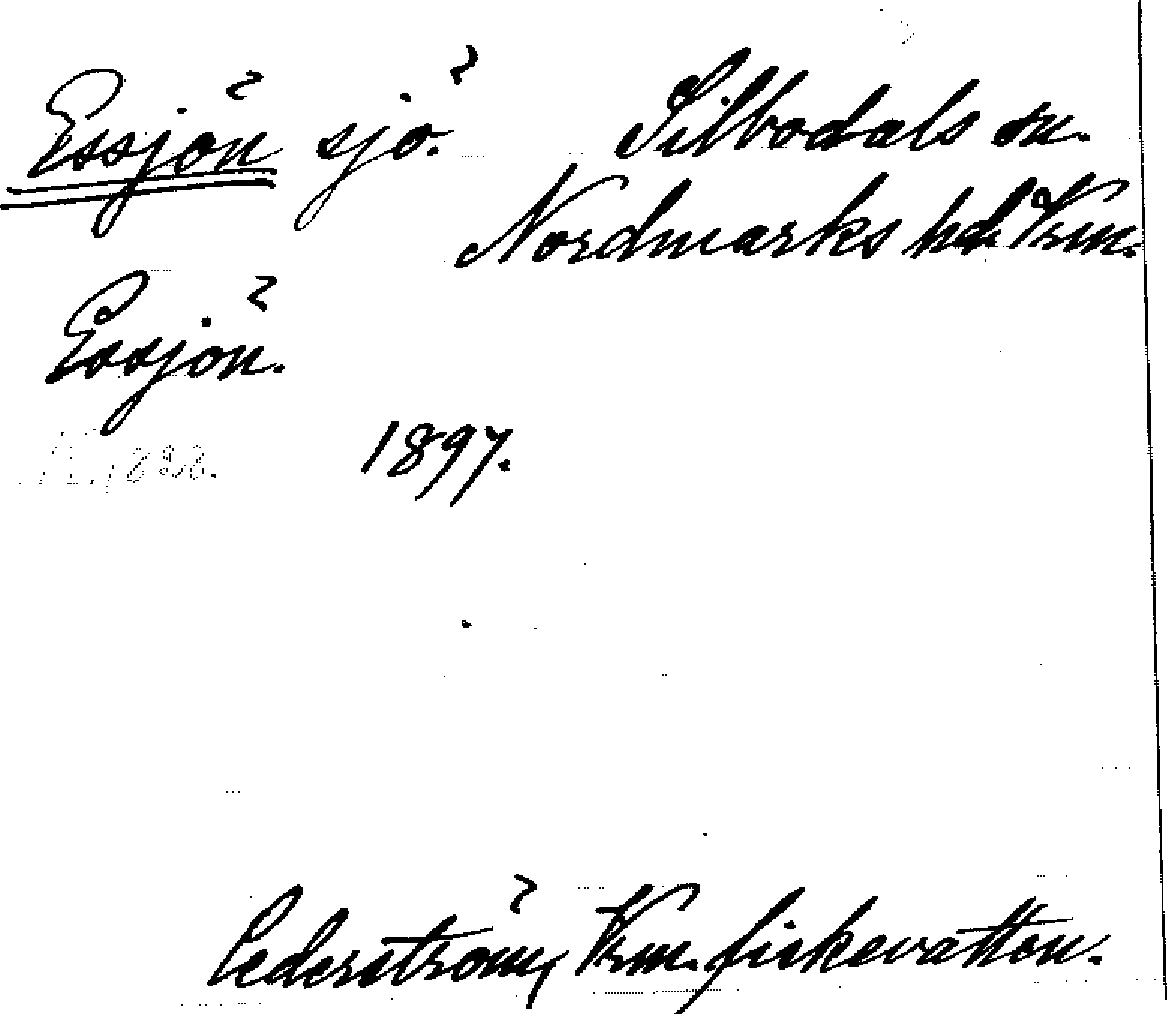 Essjön sjö. Silbodals sn.
Nordmarks hd. Vrm.
Essjön.
1897.
Cederström, Vrm. fiskevatten.